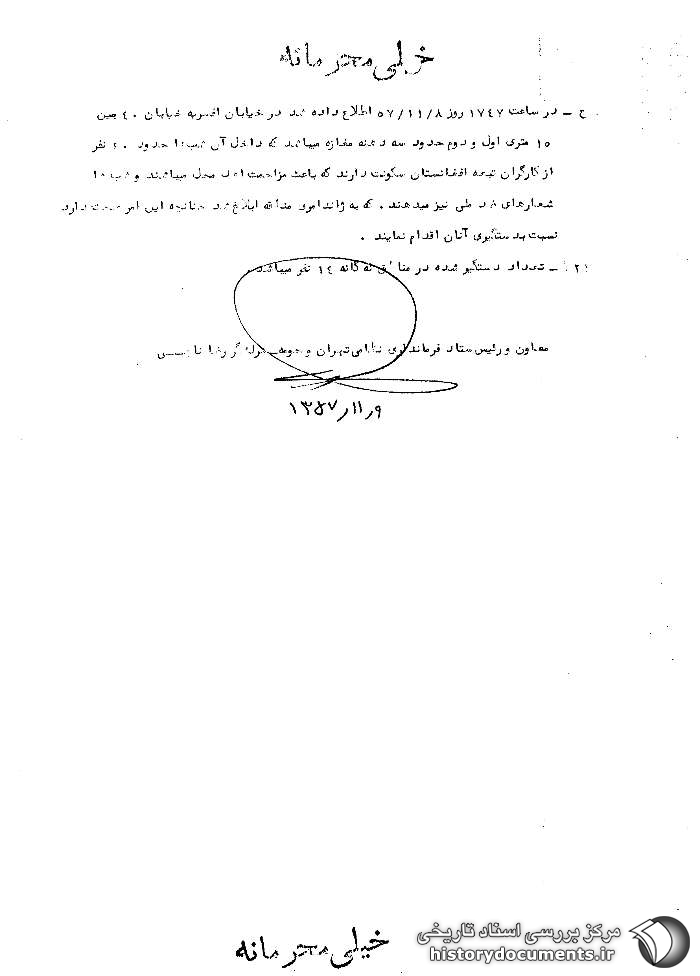 خیلی محرمانه
ح ـ در ساعت ۱۷۴۷ روز ۵۷/۱۱/۸ اطلاع داده شد در خیابان افسریه خیابان ۴۰ بین
۱۵ متری اول و دوم حدود سه دهنه مغازه میباشد که داخل آن شبها حدود ۲۰ نفر
از کارگران تبعه افغانستان سکونت دارند که باعث مزاحمت اهل محل میباشند و شبها
شعارهای ضد ملی نیز میدهند . که به ژاندامری منطقه ابلاغ شد چنانچه این امر صحت دارد
نسبت بدستگیری آنان اقدام نمایند .
ـ تعداد دستگیر شده در مناطق نه گانه ۱۴ نفر میباشد .
معاون و رئیس ستاد فرمانداری نظامی تهران و حومه
۱۳۵۷ر۱۱ر۹
خیلی محرمانه
مرکز بررسی اسناد تاریخی
historydocuments.ir